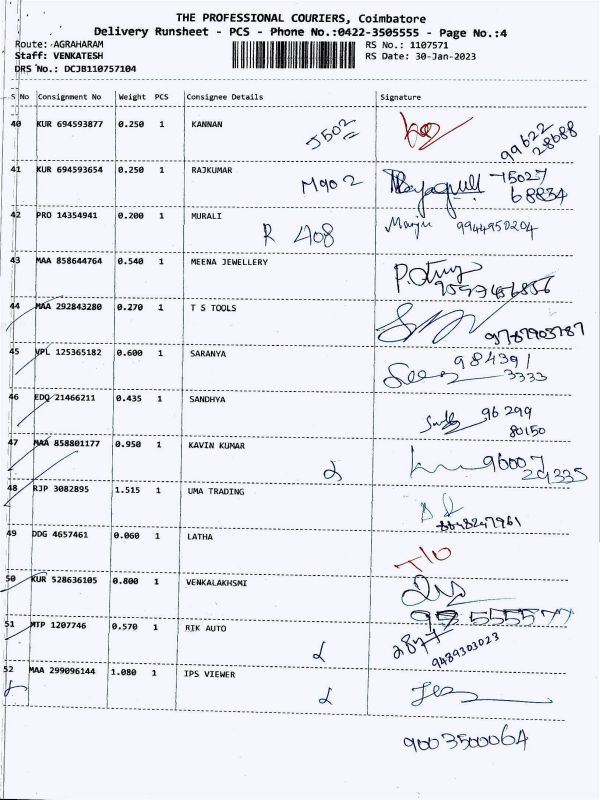 THE PROFESSIONAL COURIERS, Coimbatore
Delivery Runsheet - PCS - Phone No.:0422-3505555 - Page No.:4
Route: AGRAHARAM RS No.: 1107571
Staff: VENKATESH RS Date: 30-Jan-2023
DRS No.: DCJB110757104
S No Consignment No Weight PCS Consignee Details Signature
40 KUR 694593877 0.250 1 KANNAN J502 99622
28688
41 KUR 694593654 0.250 1 RAJKUMAR M902 75027
68834
42 PRO 14354941 0.200 1 MURALI R 408 Manju 9944950204
43 MAA 858644764 0.540 1 MEENA JEWELLERY
9599456856
44 MAA 292843280 0.270 1 T S TOOLS
9787903787
45 VPL 125365182 0.600 1 SARANYA 984391
3333
46 EDQ 21466211 0.435 1 SANDHYA 96299
80150
47 MAA 858801177 0.950 1 KAVIN KUMAR 96007
29335
48 RJP 3082895 1.515 1 UMA TRADING
8848247961
49 DDG 4657461 0.060 1 LATHA T/O
50 KUR 528636105 0.800 1 VENKALAKHSMI
555577
51 MTP 1207746 0.570 1 RIK AUTO 2877
9489303023
52 MAA 299096144 1.080 1 IPS VIEWER
9003500064